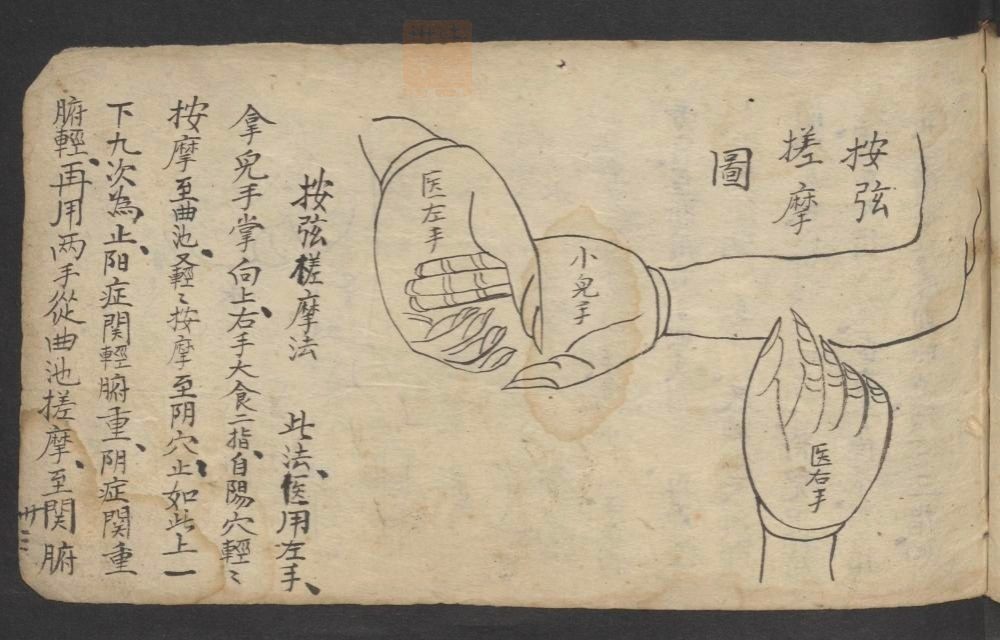 按弦
搓摩
圖
医右手
小兒手
医左手
按弦搓摩法　此法、医用左手、
拿兒手掌向上、右手大食二指、自陽穴輕〻
按摩至曲池、又輕〻按摩至阴穴止、如此上一
下九次為止、阳症関輕腑重、阴症関重
腑輕、再用两手從曲池搓摩、至関腑
卅三